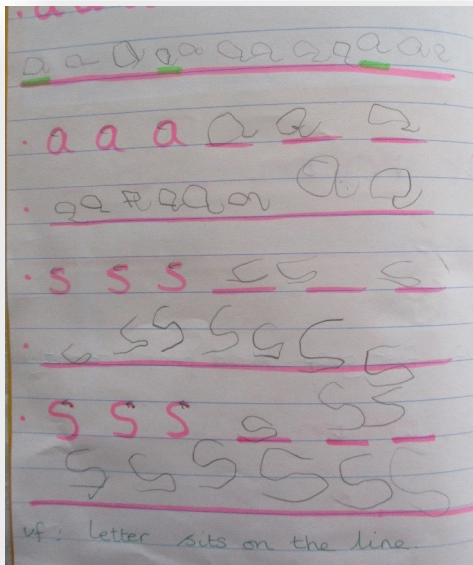 a a a a a a a a a a a a
a a a a a a
a a a a a a a a
s s s s s s
s s s s s s s
s s s s s s
s s s s s s
vf: letter sits on the line.